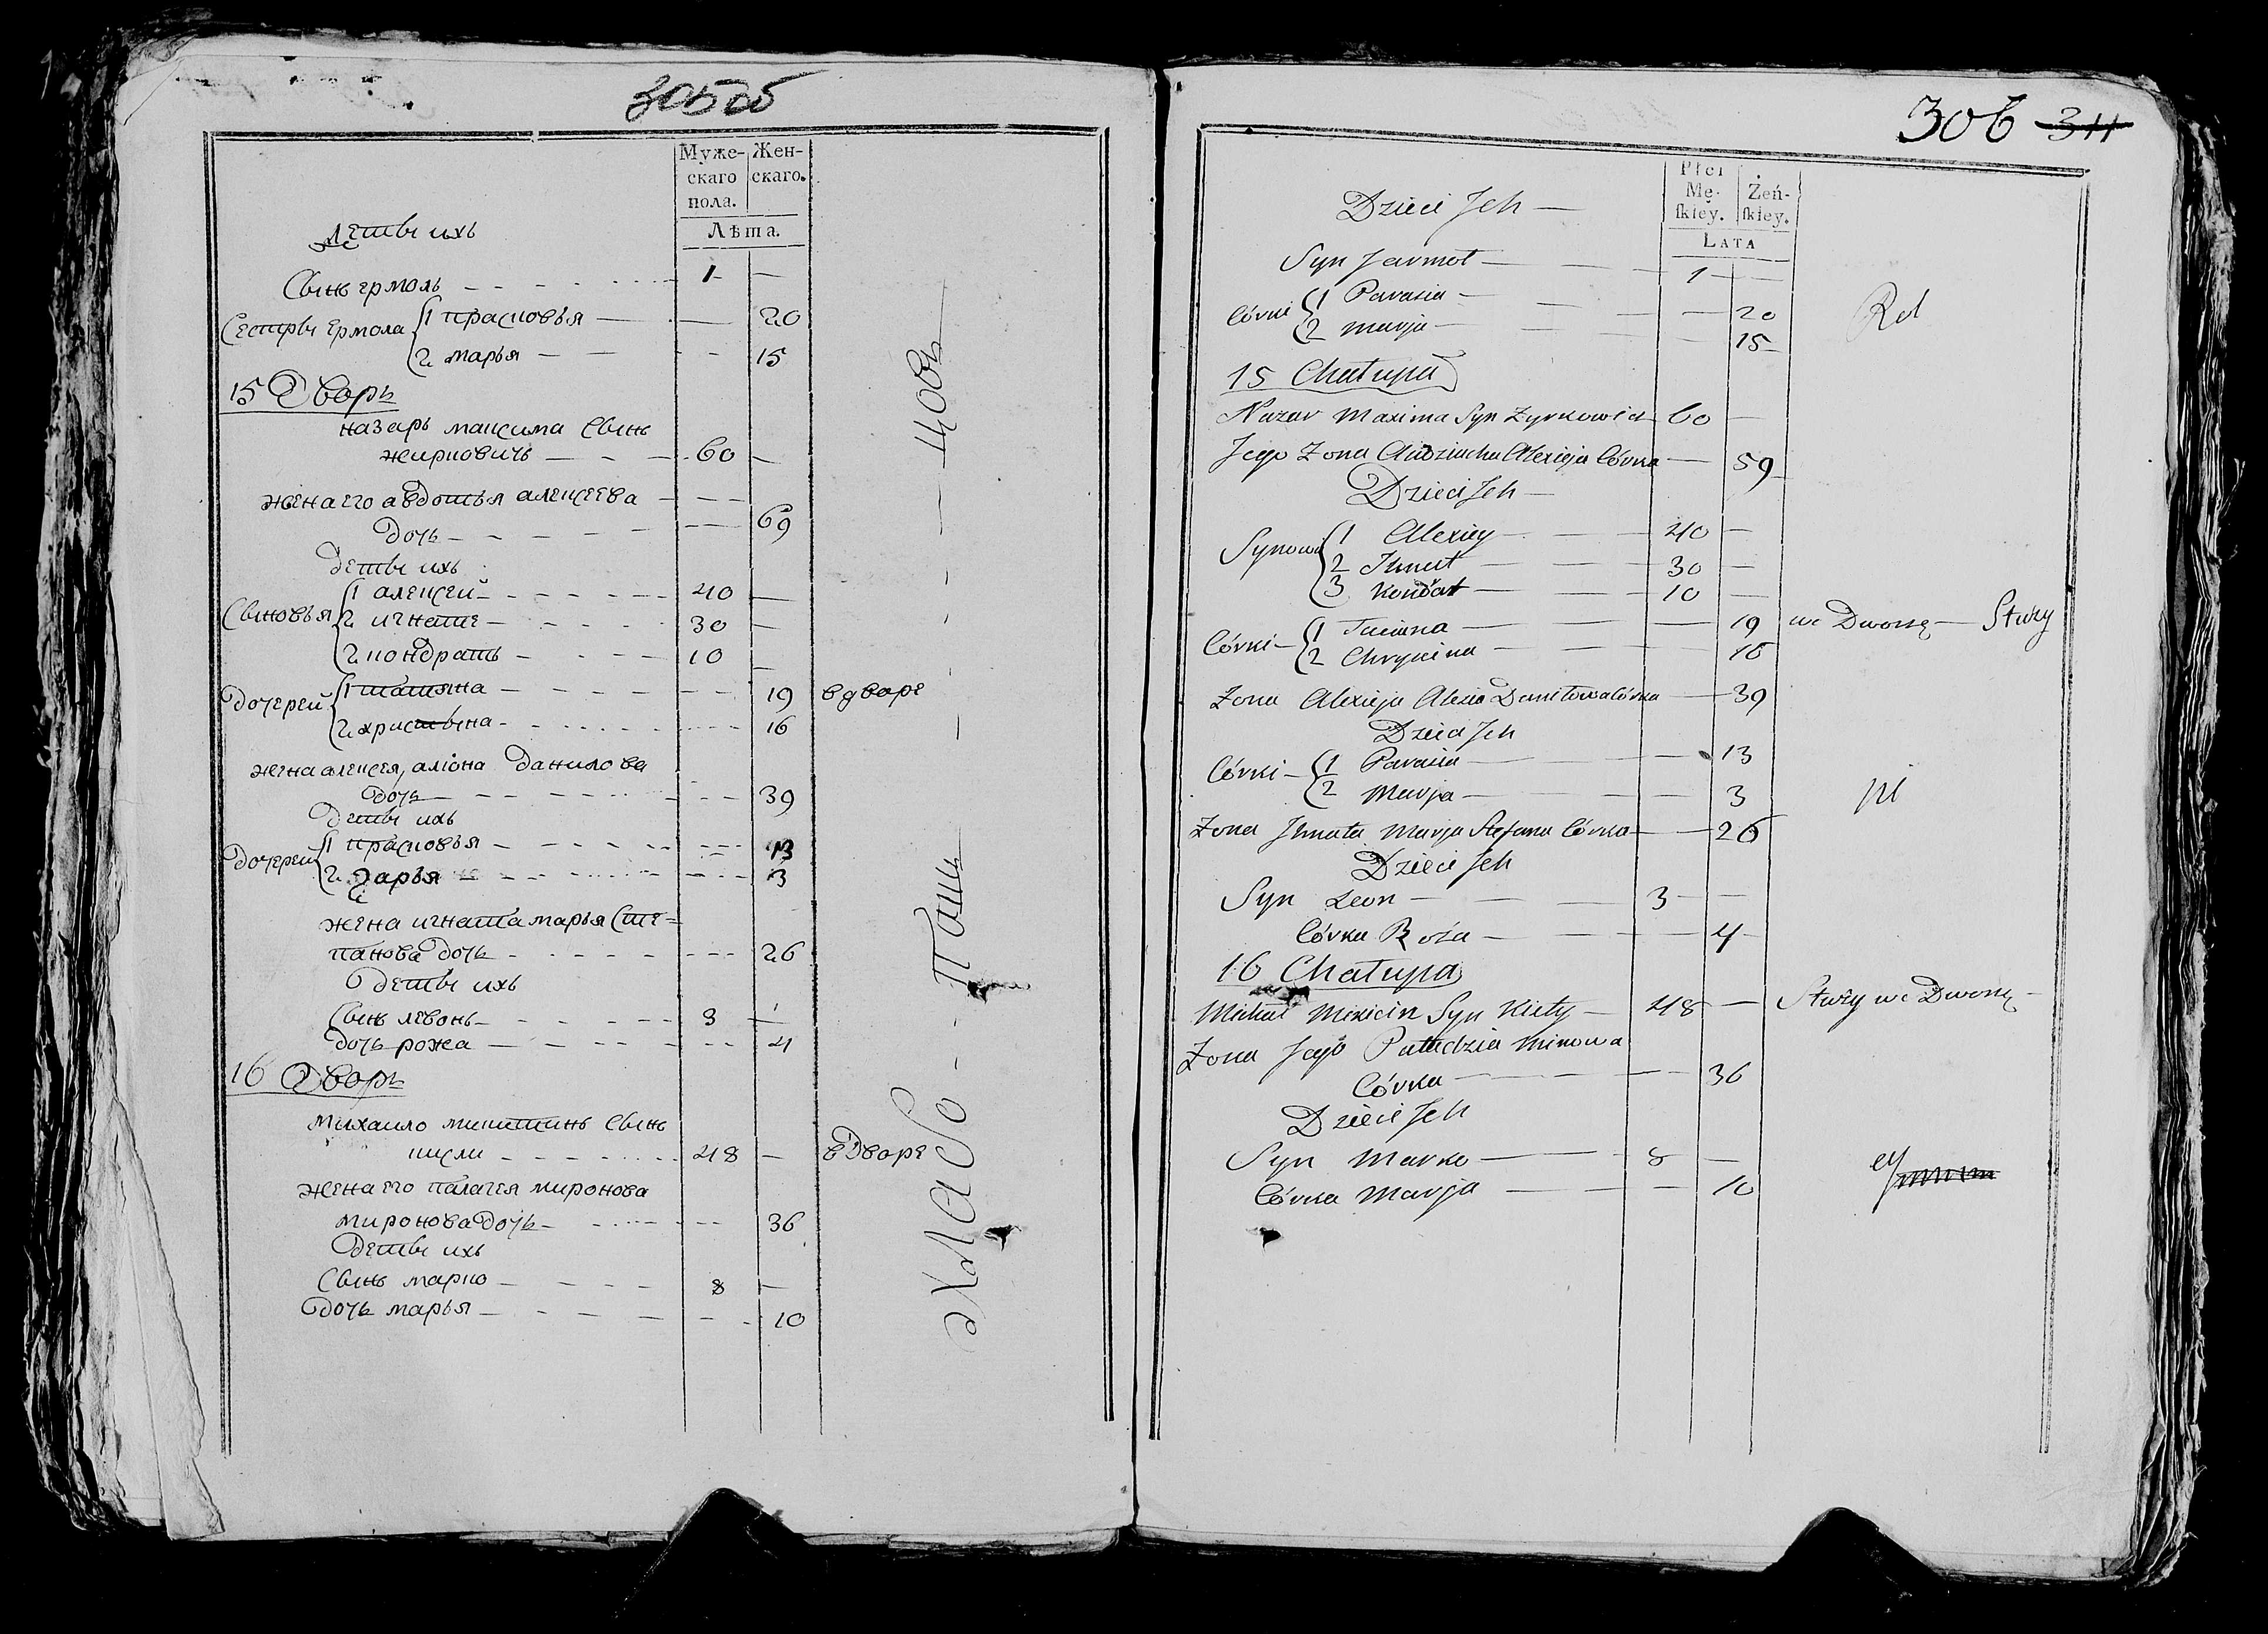 305об
Муже- Жен-
скаго скаго.
пола.
Лѣта.
детьи ихь
Сынь ермоль 1 —
Сестрьи Ермола 1 прасковья — 20
2 марья — 15
15 Дворь
назарь максима Сынь
жирковичь 60 —
жена его авдотья алексеева
дочь 69
детьи ихь
Сыновья 1 алексей 40 —
2 игнате 30 —
2 кондрать 10 —
дочерей 1 татяна 19 в дворе
2 христьина 16
жена алексея, аліона данилова
дочь 39
детьи ихь
дочерей 1 прасковья 13
2 дарья 3
жена игната марья Сте=
панова дочь 26
детьи ихь
Сынь левонь 3 —
дочь рожа 4
16 Дворь
михаило микитинь Сынь
кисли 48 — в дворе
жена его палагея миронова
миронова дочь 36
детьи ихь
Сынь марко 8 —
дочь марья 10
306 311
Płci
Mę- Żeń-
ſkiey. ſkiey.
LATA
Dzieci Jch
Syn Jarmoł 1 —
Córki 1 Parasia — 20
2 marja — 15
15 Chałupa
Nazar Maxima Syn Żyrkowicz 60 —
Jego Żona Audziucha Alexieja Córka — 59
Dzieci Jch
Synowi 1 Alexiey 40 —
2 Jhnat 30 —
3 Kondrat 10 —
Córki 1 Taciana — 19 we Dworzę — Służy
2 Chrycina — 16
Żona Alexieja Alexia Daniłowa Córka — 39
Dzieci Jch
Córki 1 Parasia — 13
2 Marja — 3
Żona Jhnata Marja Stefana Córka — 26
Dzieci Jch
Syn Leon 3 —
Córka Roźa — 4
16 Chałupa
Michał Mikicin Syn Kisły 48 — Służy we Dworzę
Żona Jego Paładzia Minowa
Córka — 36
Dzieci Jch
Syn Marko 8 —
Córka Marja — 10